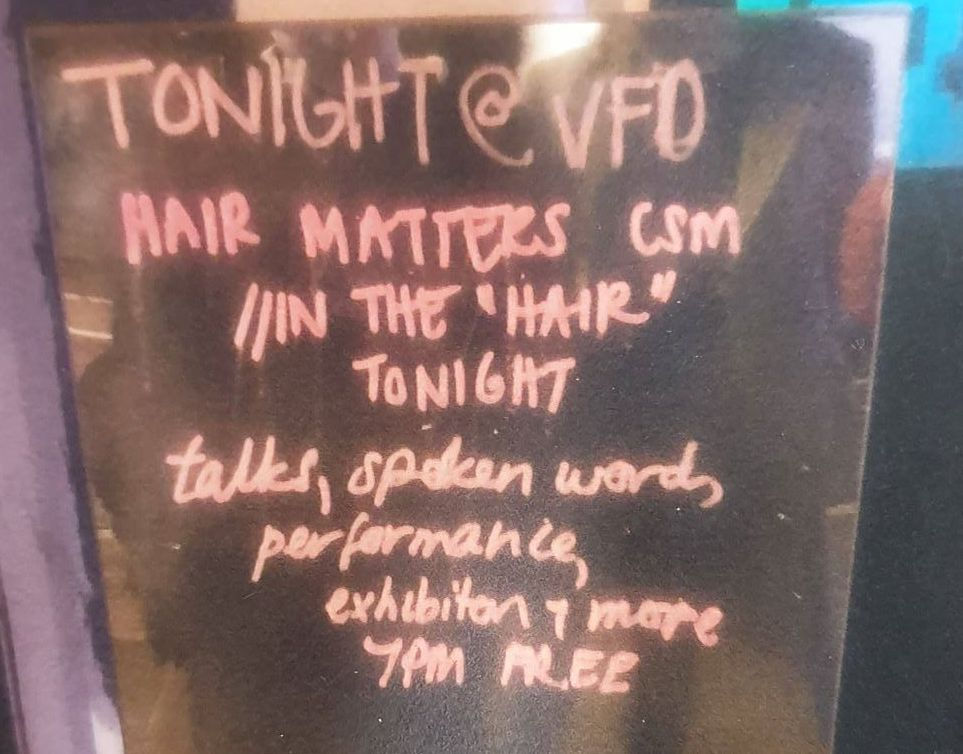 TONIGHT @ VFD
HAIR MATTERS CSM
//IN THE "HAIR"
TONIGHT
talks, spoken word,
performance,
exhibiton + more
7PM FREE